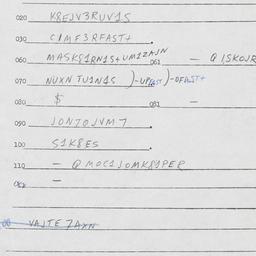 020 K8EJV3RUV1S
030 C1MF3RFAST+ .
060 MASKS1RN1S+UM1ZAJN 061 — Q1SKOJR
070 NUXNTU1N1S )-UPFAST)-OFFAST+
080 $ 081 —
090 JONTOJVM7 .
100 S1K8ES .
110 — QMOC1JOMK81PER
—
VAJTE7AXN